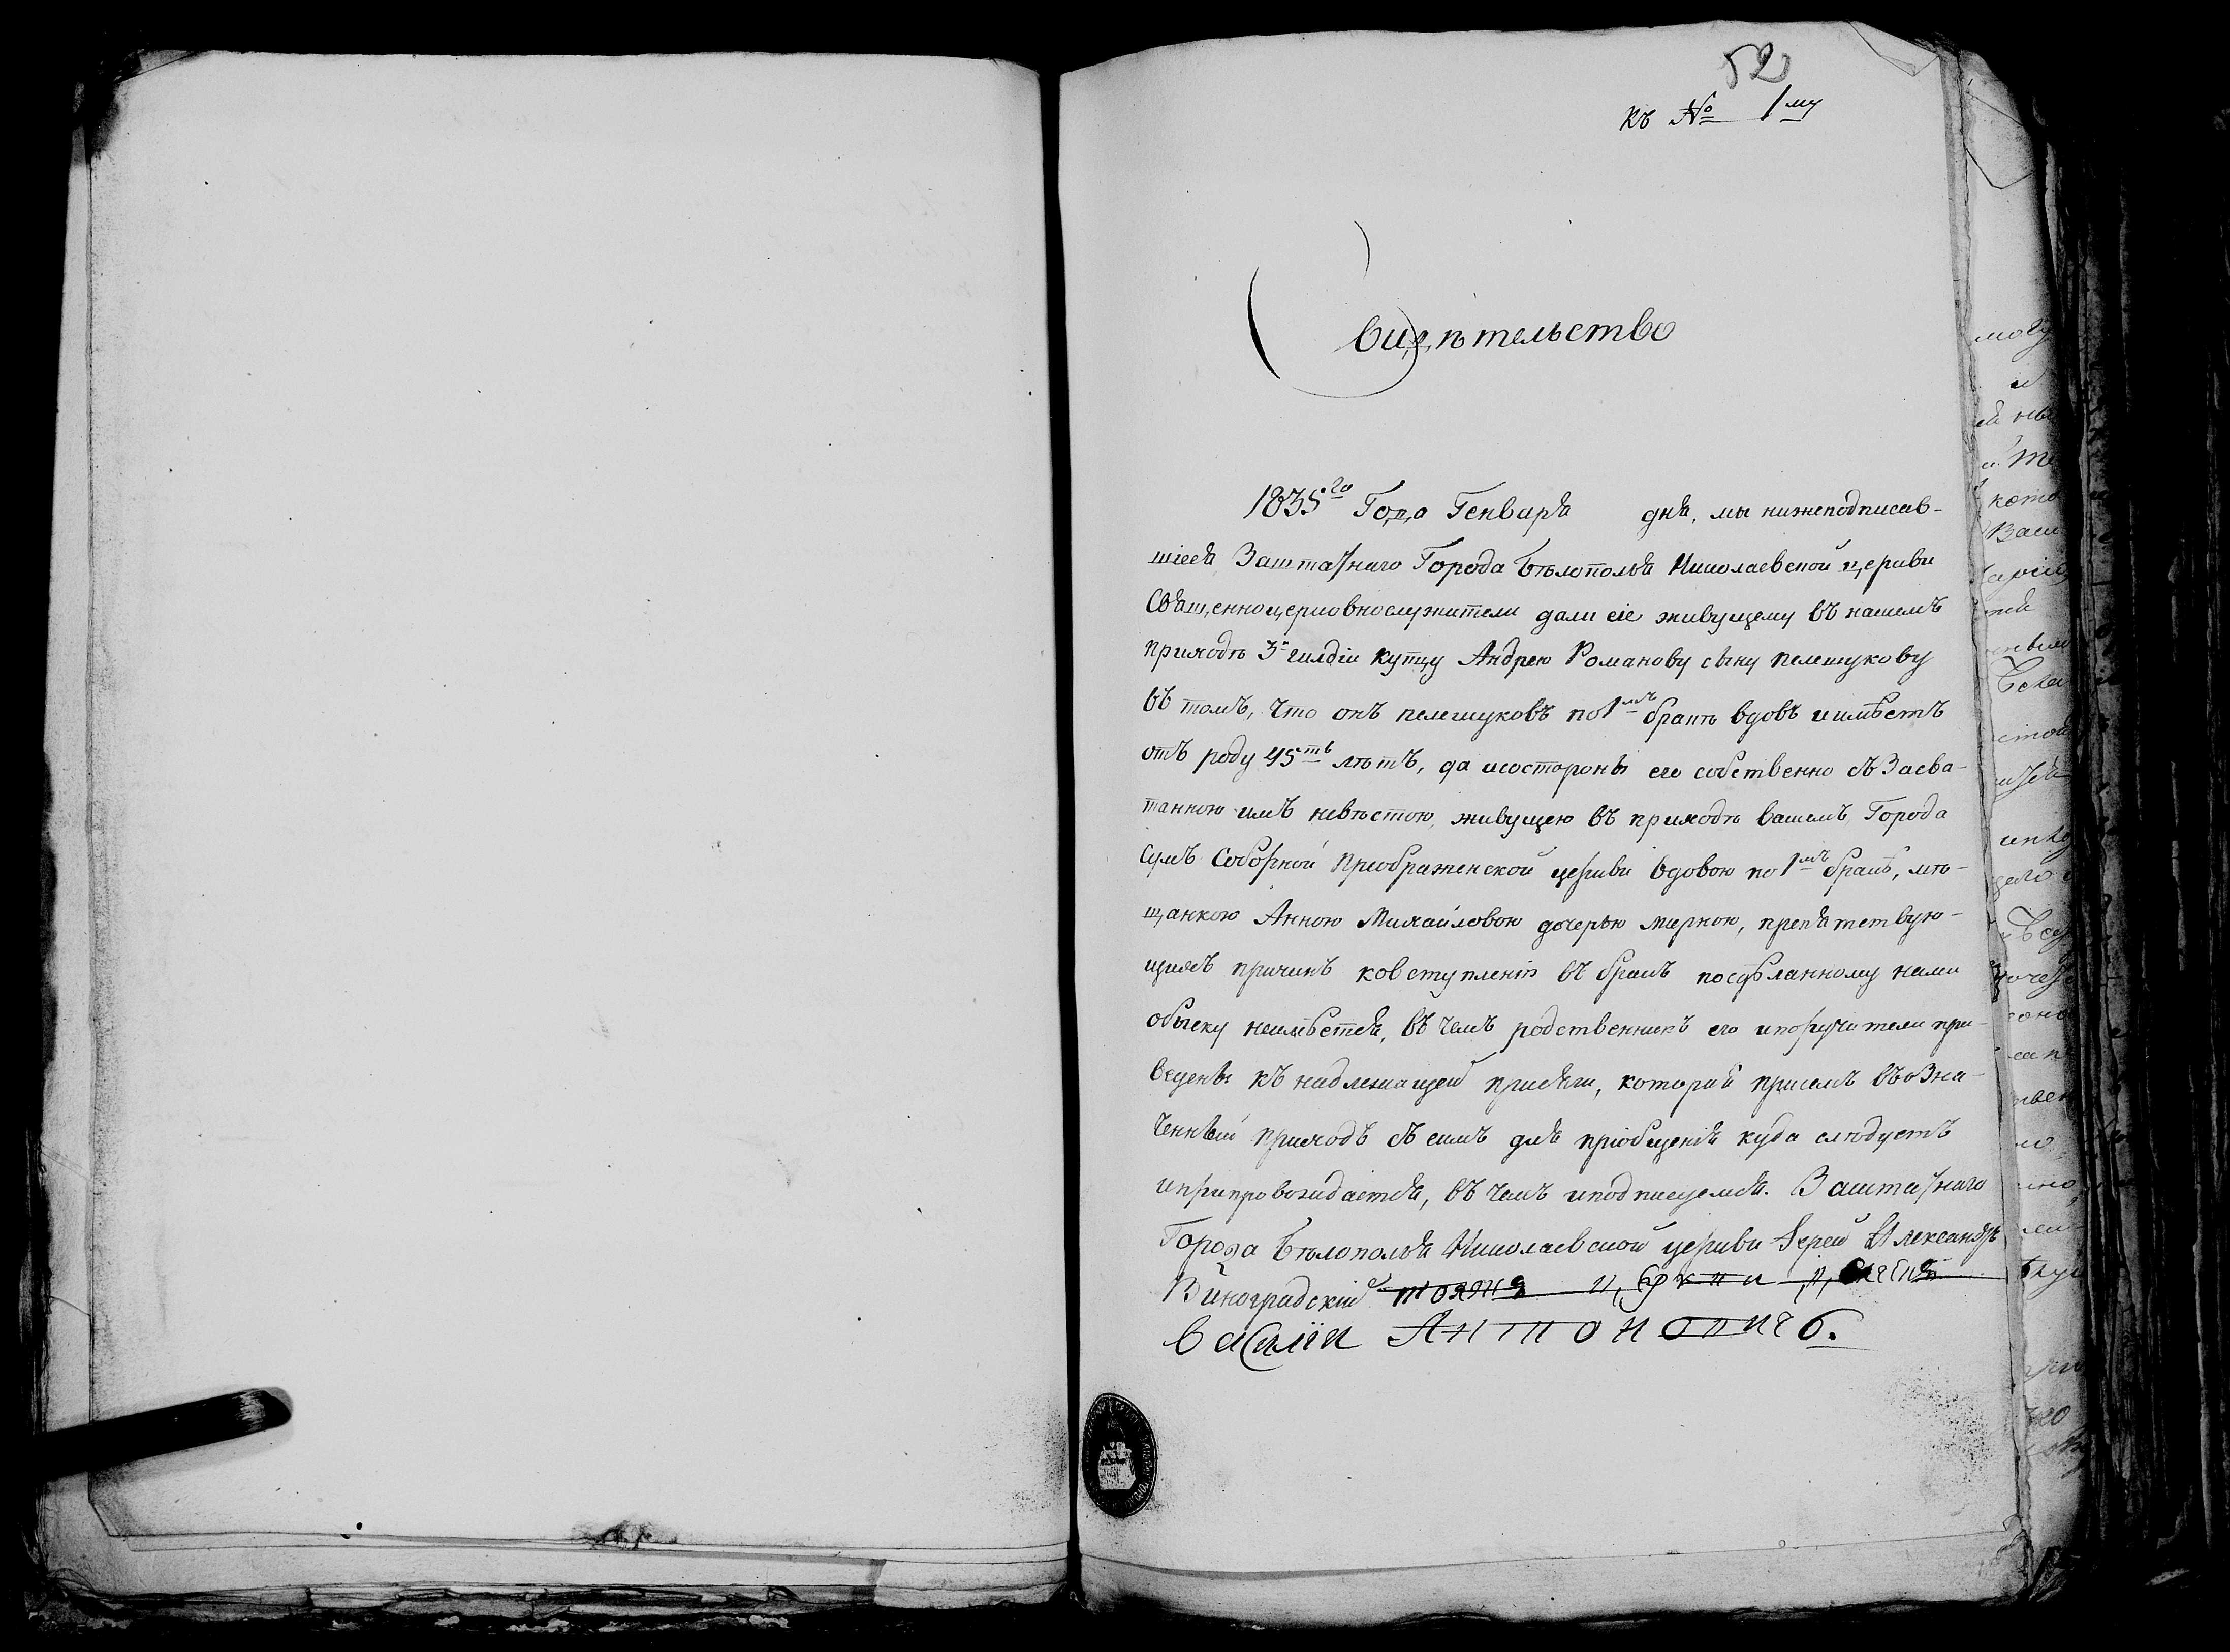 52
къ № 1му
Свидѣтельство
1835го Года Генваря дня, мы нижеподписав-
шіеся Заштатнаго Города Бѣлополья Николаевской церкви
Священноцерковнослужители дали сіе живущему въ нашемъ
приходѣ 3й гилдіи купцу Андрею Романову сыну пелешукову
въ томъ, что онъ пелешуковъ по 1мъ бракѣ вдовъ иимѣетъ
отъ роду 45ть лѣтъ, да исостороны его собственно съ Засва-
танною имъ невѣстою, живущею въ приходѣ вашемъ, Города
Сумъ Соборной Преображенской церкви вдовою по 1мъ бракѣ, мѣ-
щанкою Анною Михайловою дочерью, препятствую-
щихъ причинъ ковступленію въ бракъ посдѣланному нами
обыску неимѣется, въ чемъ родственникъ его ипоручители при-
ведены къ надлежащей присяги, который присемъ въ озна-
ченный приходъ съ симъ для пріобщенія куда слѣдуетъ
ипрепровождается, въ чемъ иподписуемся. Заштатнаго
Города Бѣлополья Николаевской церкви Іерей Александръ
Виноградскій тояжъ церкви
василій Антоновичъ.